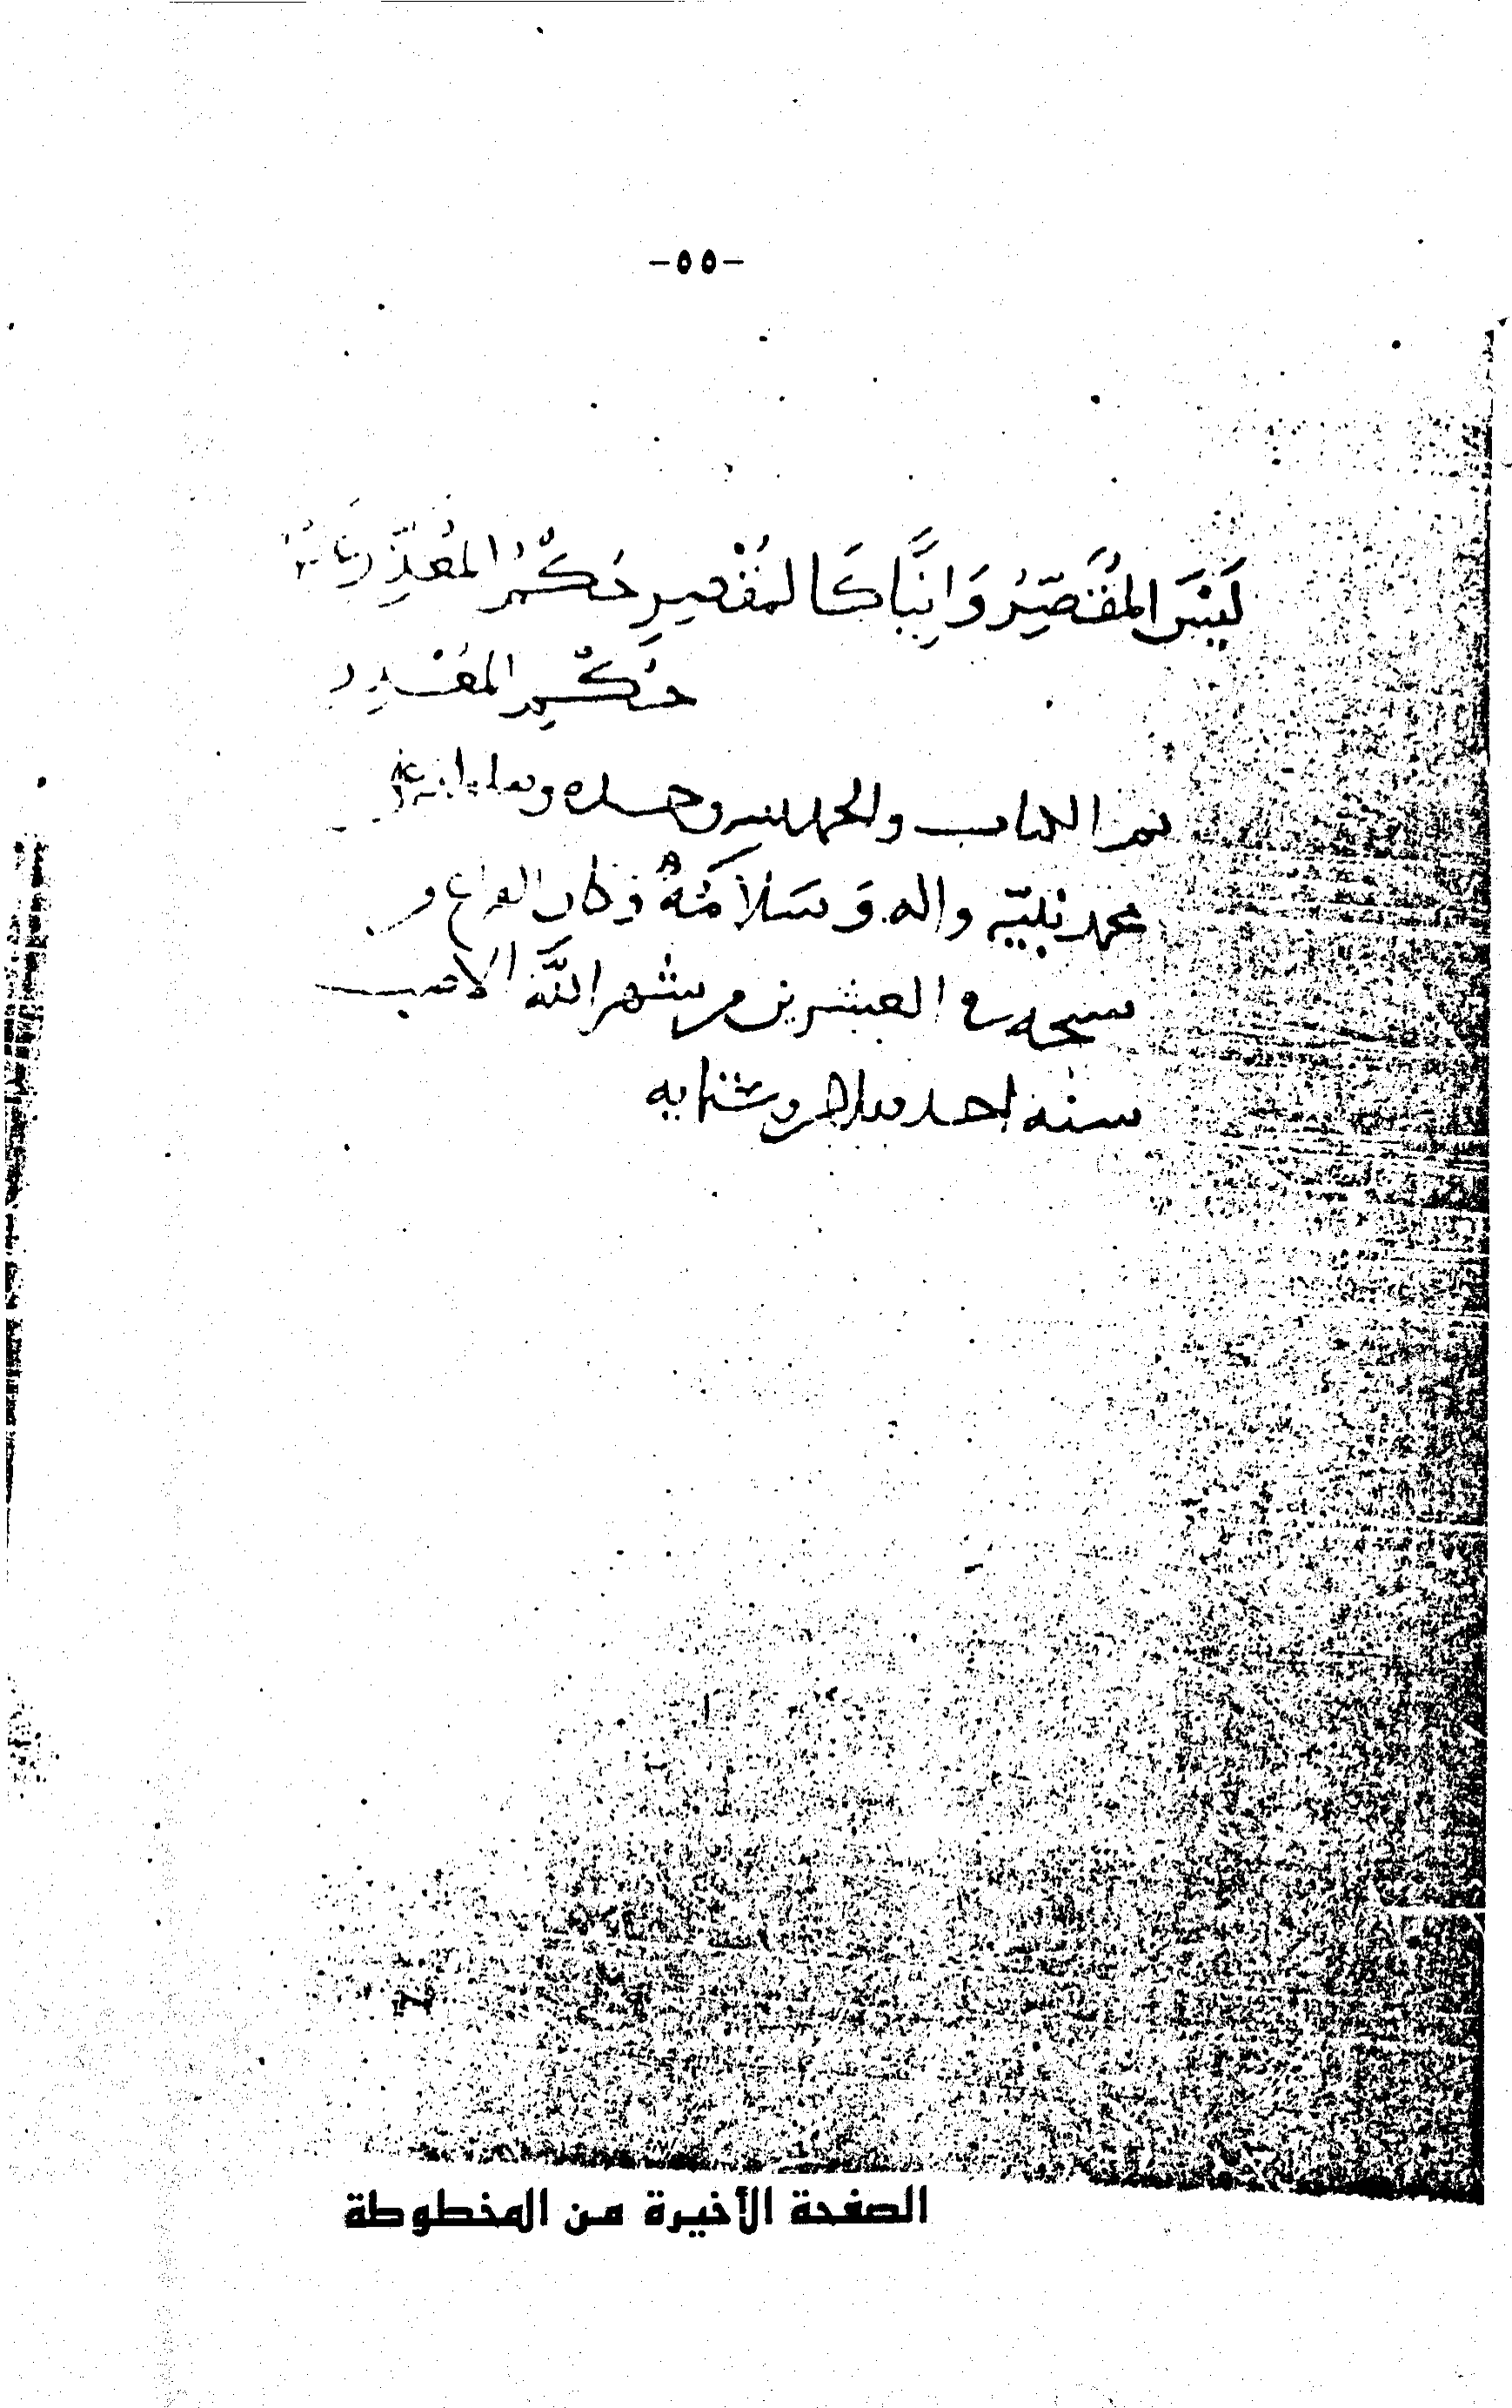 -٥٥-
لَيْسَ المُقَصِّرُ وَانِيًا كَالمُقْصِرِ حُكْمُ المُعَذِّرِ
حُكْمِ المعْذِرِ
تم الكتاب والحمد لله وحده
محمد نبيّه واله وَسَلَامُهُ وكان الفراغ من
نسخه في العشرين من شهر اللَّه الاصب
سنه احد وثلاثين وستمايه
الصفحة الأخيرة من المخطوطة